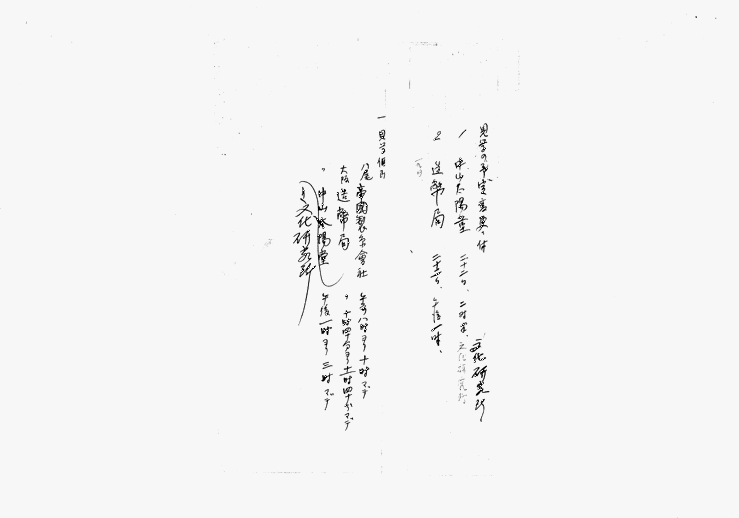 見学の予定
1 中山太陽堂 二十二日、二時
文化研究所
2 造幣局 午後一時、
一 見学個所
八尾 帝國製糸會社 午前八時ヨリ十時マデ
大阪 造幣局 〃 十時四十分ヨリ十一時四十分マデ
〃 中山太陽堂 午後一時ヨリ三時マデ
文化研究所